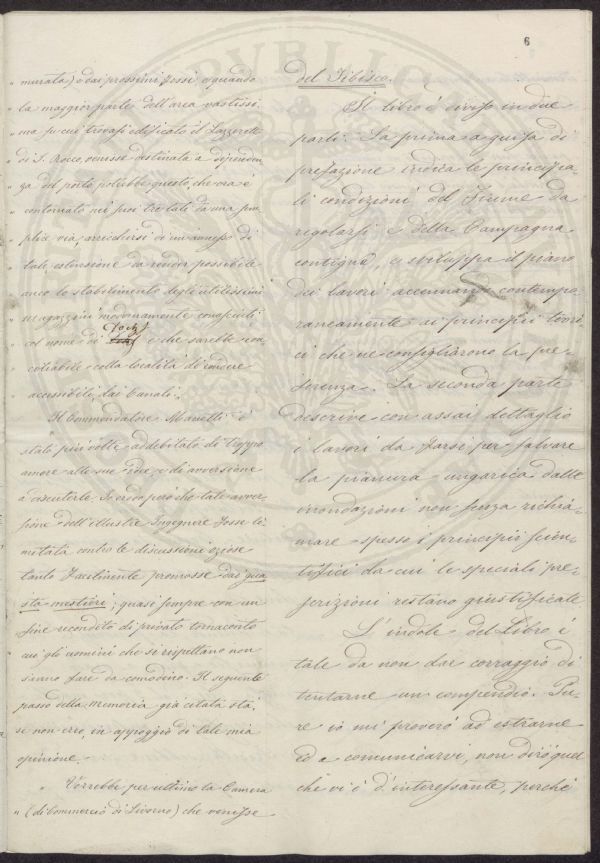 6
" murata) o dai prossimi fossi o quando
" la maggior parte dell'area vastissi-
" ma su cui trovasi edificato il Lazzeretto
" di S. Rocco, venisse destinata a dipenden
" za del porto, potrebbe questo, che ora è
" contornato nei suoi tre lati da una sem
" plice via, arricchirsi di un annesso di
" tale estensione da render possibile
" anco lo stabilimento degli utilissimi
" magazzini modernamente conosciuti
" col nome di Dochs e che sarebbe con
" ciliabile colla località di essere
" accessibili dai Canali".
Il Commendatore Manetti è
stato più volte addebitato di troppo
amore alle sue idee e di avversione
a discuterle. Io credo però che tale avver-
sione dell'illustre Ingegnere fosse li
mitata contro le discussioni oziose
tanto facilmente promosse dai gua
sta mestieri; quasi sempre con un
fine recondito di privato tornaconto
cui gli uomini che si rispettano non
sanno fare da comodino. Il seguente
passo della memoria già citata sta,
se non erro, in appoggio di tale mia
opinione.
" Vorrebbe per ultimo la Camera
" (di Commercio di Livorno) che venisse
del Tibisco.
Il libro è diviso in due
parti. La prima a guisa di
prefazione indica le principa-
li condizioni del fiume da
regolarsi e della Campagna
contigua, e sviluppa il piano
dei lavori accennando contempo
raneamente ai principii teori-
ci che ne consigliarono la pre-
ferenza. La seconda parte
descrive con assai dettaglio
i lavori da farsi per salvare
la pianura ungarica dalle
inondazioni non senza richia-
mare spesso i principii scien-
tifici da cui le speciali pre-
scrizioni restano giustificate
L'indole del Libro è
tale da non dar corraggio di
tentarne un compendio. Pu-
re io mi proverò ad estrarne
ed a comunicarvi, non dirò quel
che vi è d'interessante, perchè